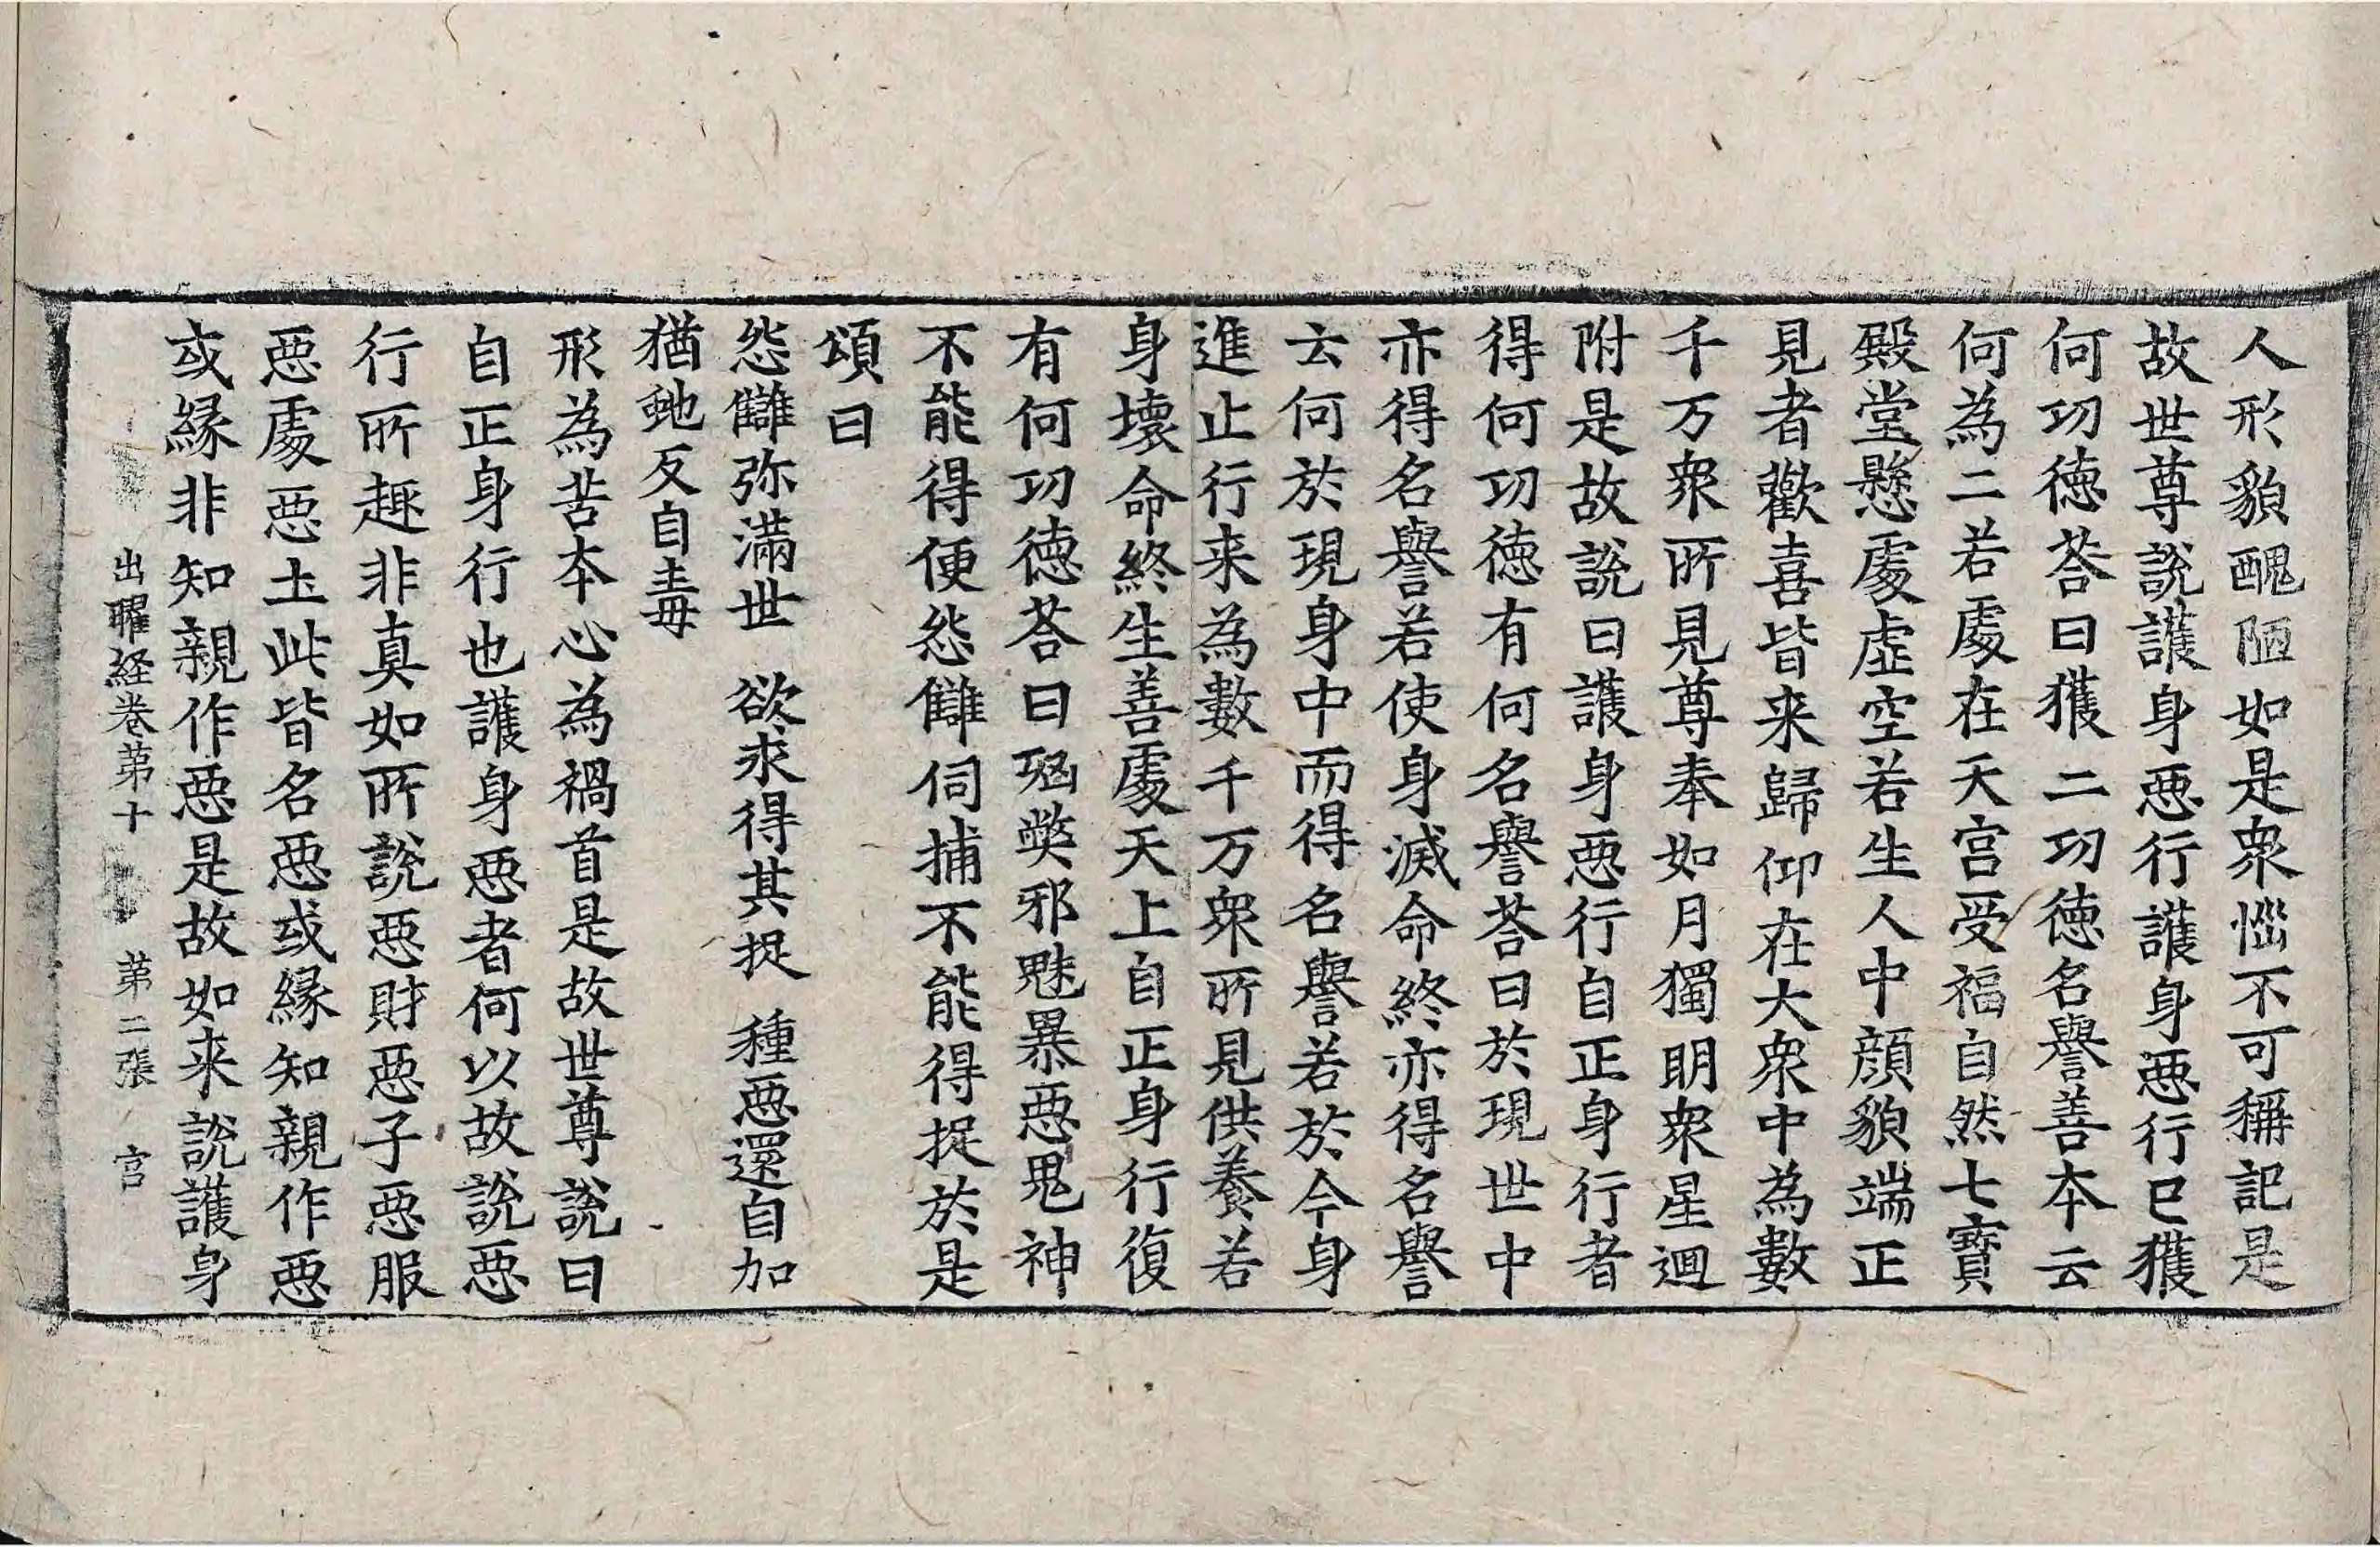 人形貌醜陋如是衆惱不可稱記是
故世尊說護身惡行護身惡行已獲
何功德荅曰獲二功德名譽善本云
何為二若處在天宮受福自然七寶
殿堂懸處虛空若生人中顔貌端正
見者歡喜皆来歸仰在大衆中為數
千万衆所見尊奉如月獨明衆星迴
附是故說曰護身惡行自正身行者
得何功德有何名譽荅曰於現世中
亦得名譽若使身滅命終亦得名譽
云何於現身中而得名譽若於今身
進止行来為數千万衆所見供養若
身壞命終生善處天上自正身行復
有何功德荅曰㓙獘邪魅暴惡鬼神
不能得便怨讎伺捕不能得捉於是
頌曰
怨讎弥滿世 欲求得其捉 種惡還自加
猶虵反自毒
形為苦本心為禍首是故世尊說曰
自正身行也護身惡者何以故說惡
行所趣非真如所說惡財惡子惡服
惡處惡土此皆名惡或緣知親作惡
或緣非知親作惡是故如来說護身
出曜経卷第十 第二張 宫